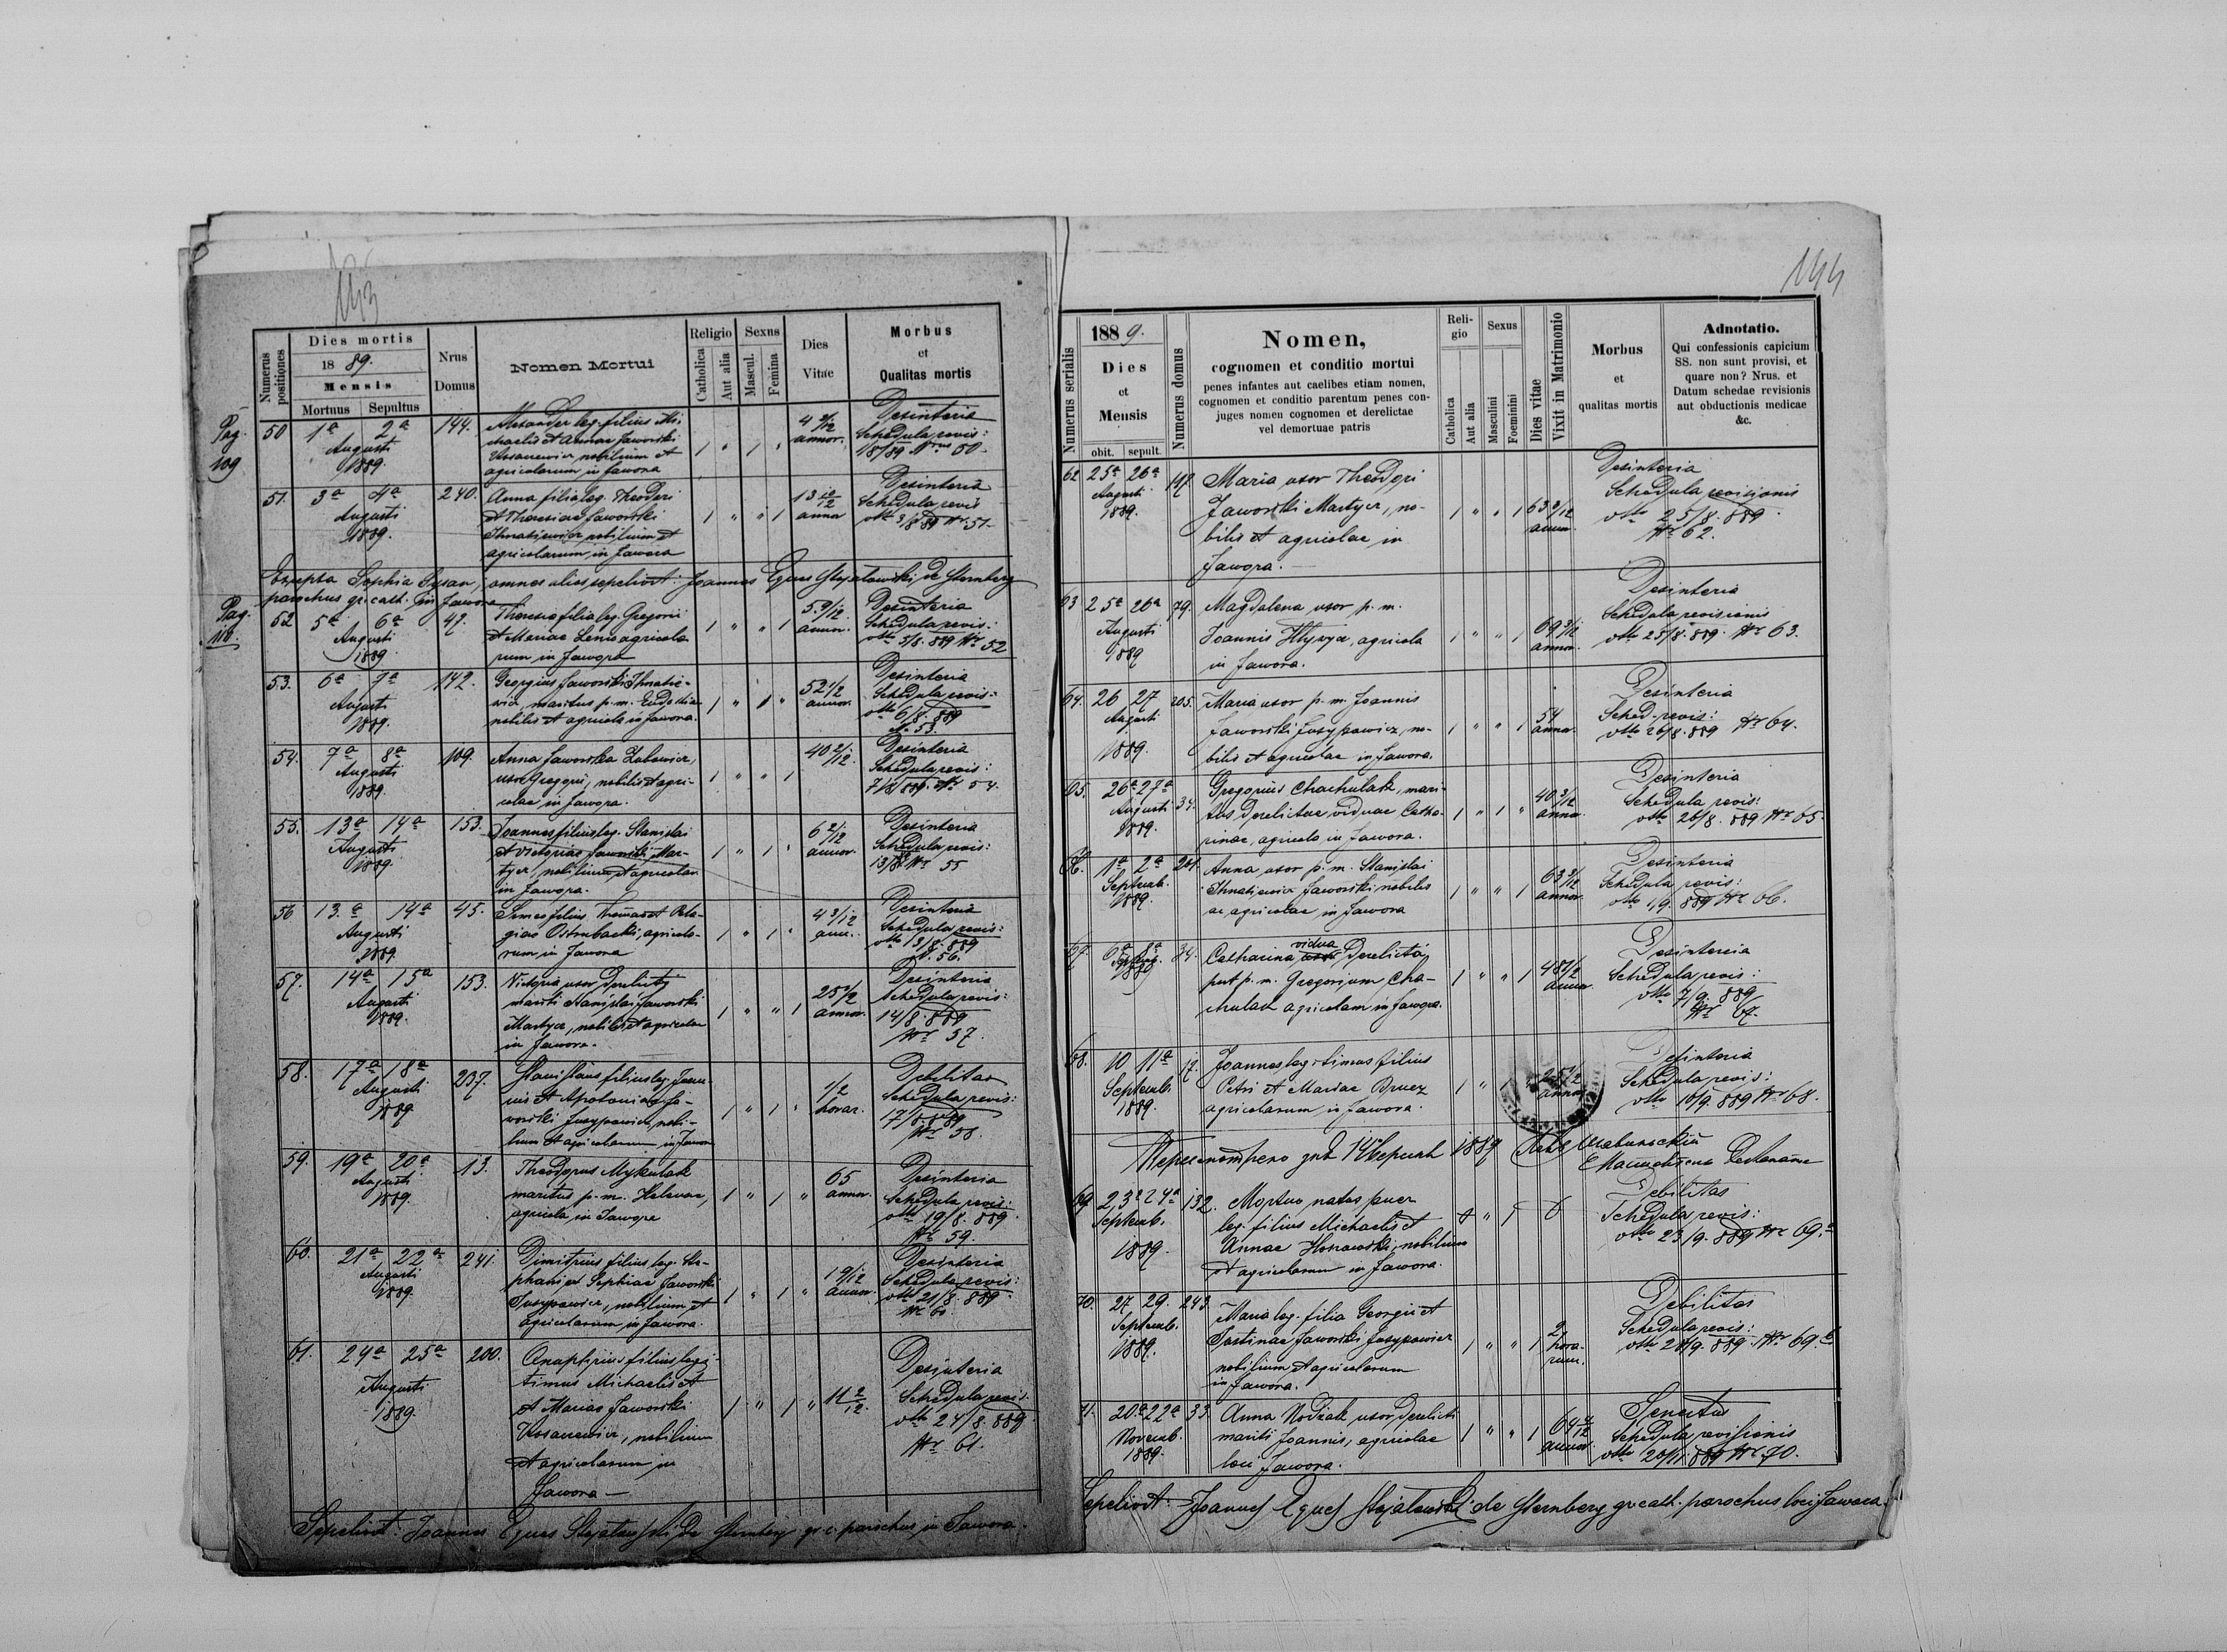 143
Numerus positiones
Dies mortis
18 89.
Mensis
Mortuus Sepultus
Nrus Domus
Nomen Mortui
Religio
Catholica
Aut alia
Sexus
Mascul.
Femina
Dies Vitae
Morbus et Qualitas mortis
Pag. 109
50 1ª 2ª Augusti 1889. 144.
Alexander leg. filius Mi-
chaelis et Annae Jaworski
nobilium et
agricolarum in Jawora
4 2/12 annor.
Desinteria
Schedula revis:
1/8 89 Nrus 50.
51. 3ª 4ª Augusti 1889. 240.
Anna filia leg. Theodori
et Theresiae Jaworski
Ihnatiewicz nobilium et
agricolarum in Jawora
13 10/12 anno
Desinteria
Schedula revis
dtto 3/8 89 Nr. 51.
Excepta Sophia omnes alios sepelivit: Joannes Eques Stojałowski de Sternberg
parochus gr. cath. in Jawora
Pag. 110.
52 5ª 6ª Augusti 1889. 47.
Theresia filia leg. Gregorii
et Mariae agricola
rum in Jawora
5 9/12 annor.
Desinteria
Schedula revis:
dtto 5/8. 889 Nr 52
53. 6ª 7ª Augusti 1889. 142.
Georgius Jaworski Ihnatie-
wicz, maritus p. m. Eudokia
nobilis et agricola in Jawora.
52 1/2 annor.
Desinteria
Schedula revis:
dtto 6/8. 889
N. 53.
54. 7ª 8ª Augusti 1889. 109.
Anna Jaworska
uxor Gregorii, nobilis et agri-
colae in Jawora.
40 2/12.
Desinteria
Schedula revis:
7/8 889. Nr 54.
55. 13ª 14ª Augusti 1889. 153.
Joannes filius leg. Stanislai
et Victoriae Jaworski Mar-
tycz, nobilium et agricolar
in Jawora.
6 2/12 annor.
Desinteria
Schedula revis:
13/8 Nr 55
56 13.ª 14ª Augusti 1889. 45.
filius Thomae et Pela-
giae agricola-
rum in Jawora
4 3/12 ann.
Desinteria
Schedula revis:
dtto 13/8. 889
N. 56.
57. 14ª 15ª Augusti 1889. 153.
Victoria uxor derelicti
mariti Stanislai Jaworski
Martycz, nobilis et agricolae
in Jawora.
25 1/2 annor.
Desinteria
Schedula revis:
14/8. 889
Nr 57.
58. 17ª 18ª Augusti 1889 237.
Stanislaus filius leg. Joan-
nis et Apoloniae Ja-
worski Jusypowicz, nobi-
lium et agricolarum in Jawora
1/2 horar.
Debilitas
Schedula revis:
17/8. 889
Nr 58.
59. 19ª 20ª Augusti 1889. 13.
Theodorus Mykulak
maritus p. m. Helenae,
agricola in Jawora
65 annor.
Desinteria
Schedula revis:
dtto 19/8. 889
Nr 59.
60. 21ª 22ª Augusti 1889. 241.
Dimitrius filius leg. Ste-
phani et Sophiae Jaworski
Jusypowicz, nobilium et
agricolarum in Jawora.
1 9/12 annor.
Desinteria
Schedula revis:
dtto 21/8. 889
Nr 60
61. 24ª 25ª Augusti 1889. 200.
Onuphrius filius legi-
timus Michaelis et
et Mariae Jaworski
nobilium
et agricolarum in
Jawora —
11 2/12.
Desinteria
Schedula revis.
dtto 24/8. 889
Nr 61.
Sepelivit: Joannes Eques Stojałowski de Sternberg gr. c. parochus in Jawora.
144
Numerus serialis
188 9.
Dies et Mensis
obit. sepult.
Numerus domus
Nomen,
cognomen et conditio mortui
penes infantes aut caelibes etiam nomen,
cognomen et conditio parentum penes con-
juges nomen cognomen et derelictae
vel demortuae patris
Reli-
gio
Catholica
Aut alia
Sexus
Masculini
Foeminini
Dies vitae
Vixit in Matrimonio
Morbus
et
qualitas mortis
Adnotatio.
Qui confessionis capicium
SS. non sunt provisi, et
quare non? Nrus. et
Datum schedae revisionis
aut obductionis medicae
&c.
62 25ª 26ª Augusti 1889. 147.
Maria uxor Theodori
Jaworski Martycz, no-
bilis et agricolae in
Jawora. —
63 2/12 annor.
Desinteria
Schedula revisionis
dtto 25/8. 889.
Nr 62.
63 25ª 26ª Augusti 1889 79.
Magdalena uxor p. m.
Joannis agricola
in Jawora.
69 3/12 annor.
Desinteria
Schedula revisionis
dtto 25/8. 889. Nr 63.
64. 26 27 Augusti 1889. 205.
Maria uxor p. m. Joannis
Jaworski Jusypowicz, no-
bilis et agricolae in Jawora.
54 annor.
Desinteria
Sched. revis:
dtto 26/8. 889 Nr 64.
65. 26ª 27ª Augusti 1889. 34.
Gregorius Chachulak, mari-
tus derelictae viduae Catha-
rinae, agricola in Jawora.
40 3/12 annor.
Desinteria
Schedula revis:
dtto 26/8. 889 Nr 65.
66. 1ª 2ª Septemb. 1889. 201
Anna uxor p. m. Stanislai
Ihnatiewicz Jaworski nobilis
ac agricolae in Jawora
63 3/12 annor.
Desinteria
Schedula revis:
dtto 1/9. 889 Nr 66.
67. 8ª 34.
Catharina vidua derelicta
post p. m. Gregorium Cha-
chulak agricolam in Jawora.
48 1/2 annor.
Desinteria
Schedula revis:
dtto 7/9. 889
Nr 67.
68. 10 11ª Septemb. 1889. 17.
Joannes legitimus filius
Petri et Mariae
agricolarum in Jawora.
annor
Desinteria
Schedula revis:
dtto 10/9. 889 Nr 68.
14 1889
69. 23ª 24ª Septemb. 1889. 132.
Mortuo natus puer
leg. filius Michaelis et
Annae nobilium
et agricolarum in Jawora.
Debilitas
Schedula revis:
dtto 23/9. 889 Nr 69.ª
70. 27 29. Septemb. 1889. 243.
Maria leg. filia Georgii et
Justinae Jaworski Jusypowicz
nobilium et agricolarum
in Jawora.
2 hora-
rum.
Debilitas
Schedula revis:
dtto 28/9. 889. Nr 69.b
71. 20ª 22ª Novemb. 1889. 33.
Anna uxor derelicti
mariti Joannis, agricolae
loci Jawora.
64 4/12 annor.
Senectus
Schedula revisionis
dtto 20/11 889 Nr 70.
Sepelivit: Joannes Eques Stojałowski de Sternberg gr cath. parochus loci Jawora.